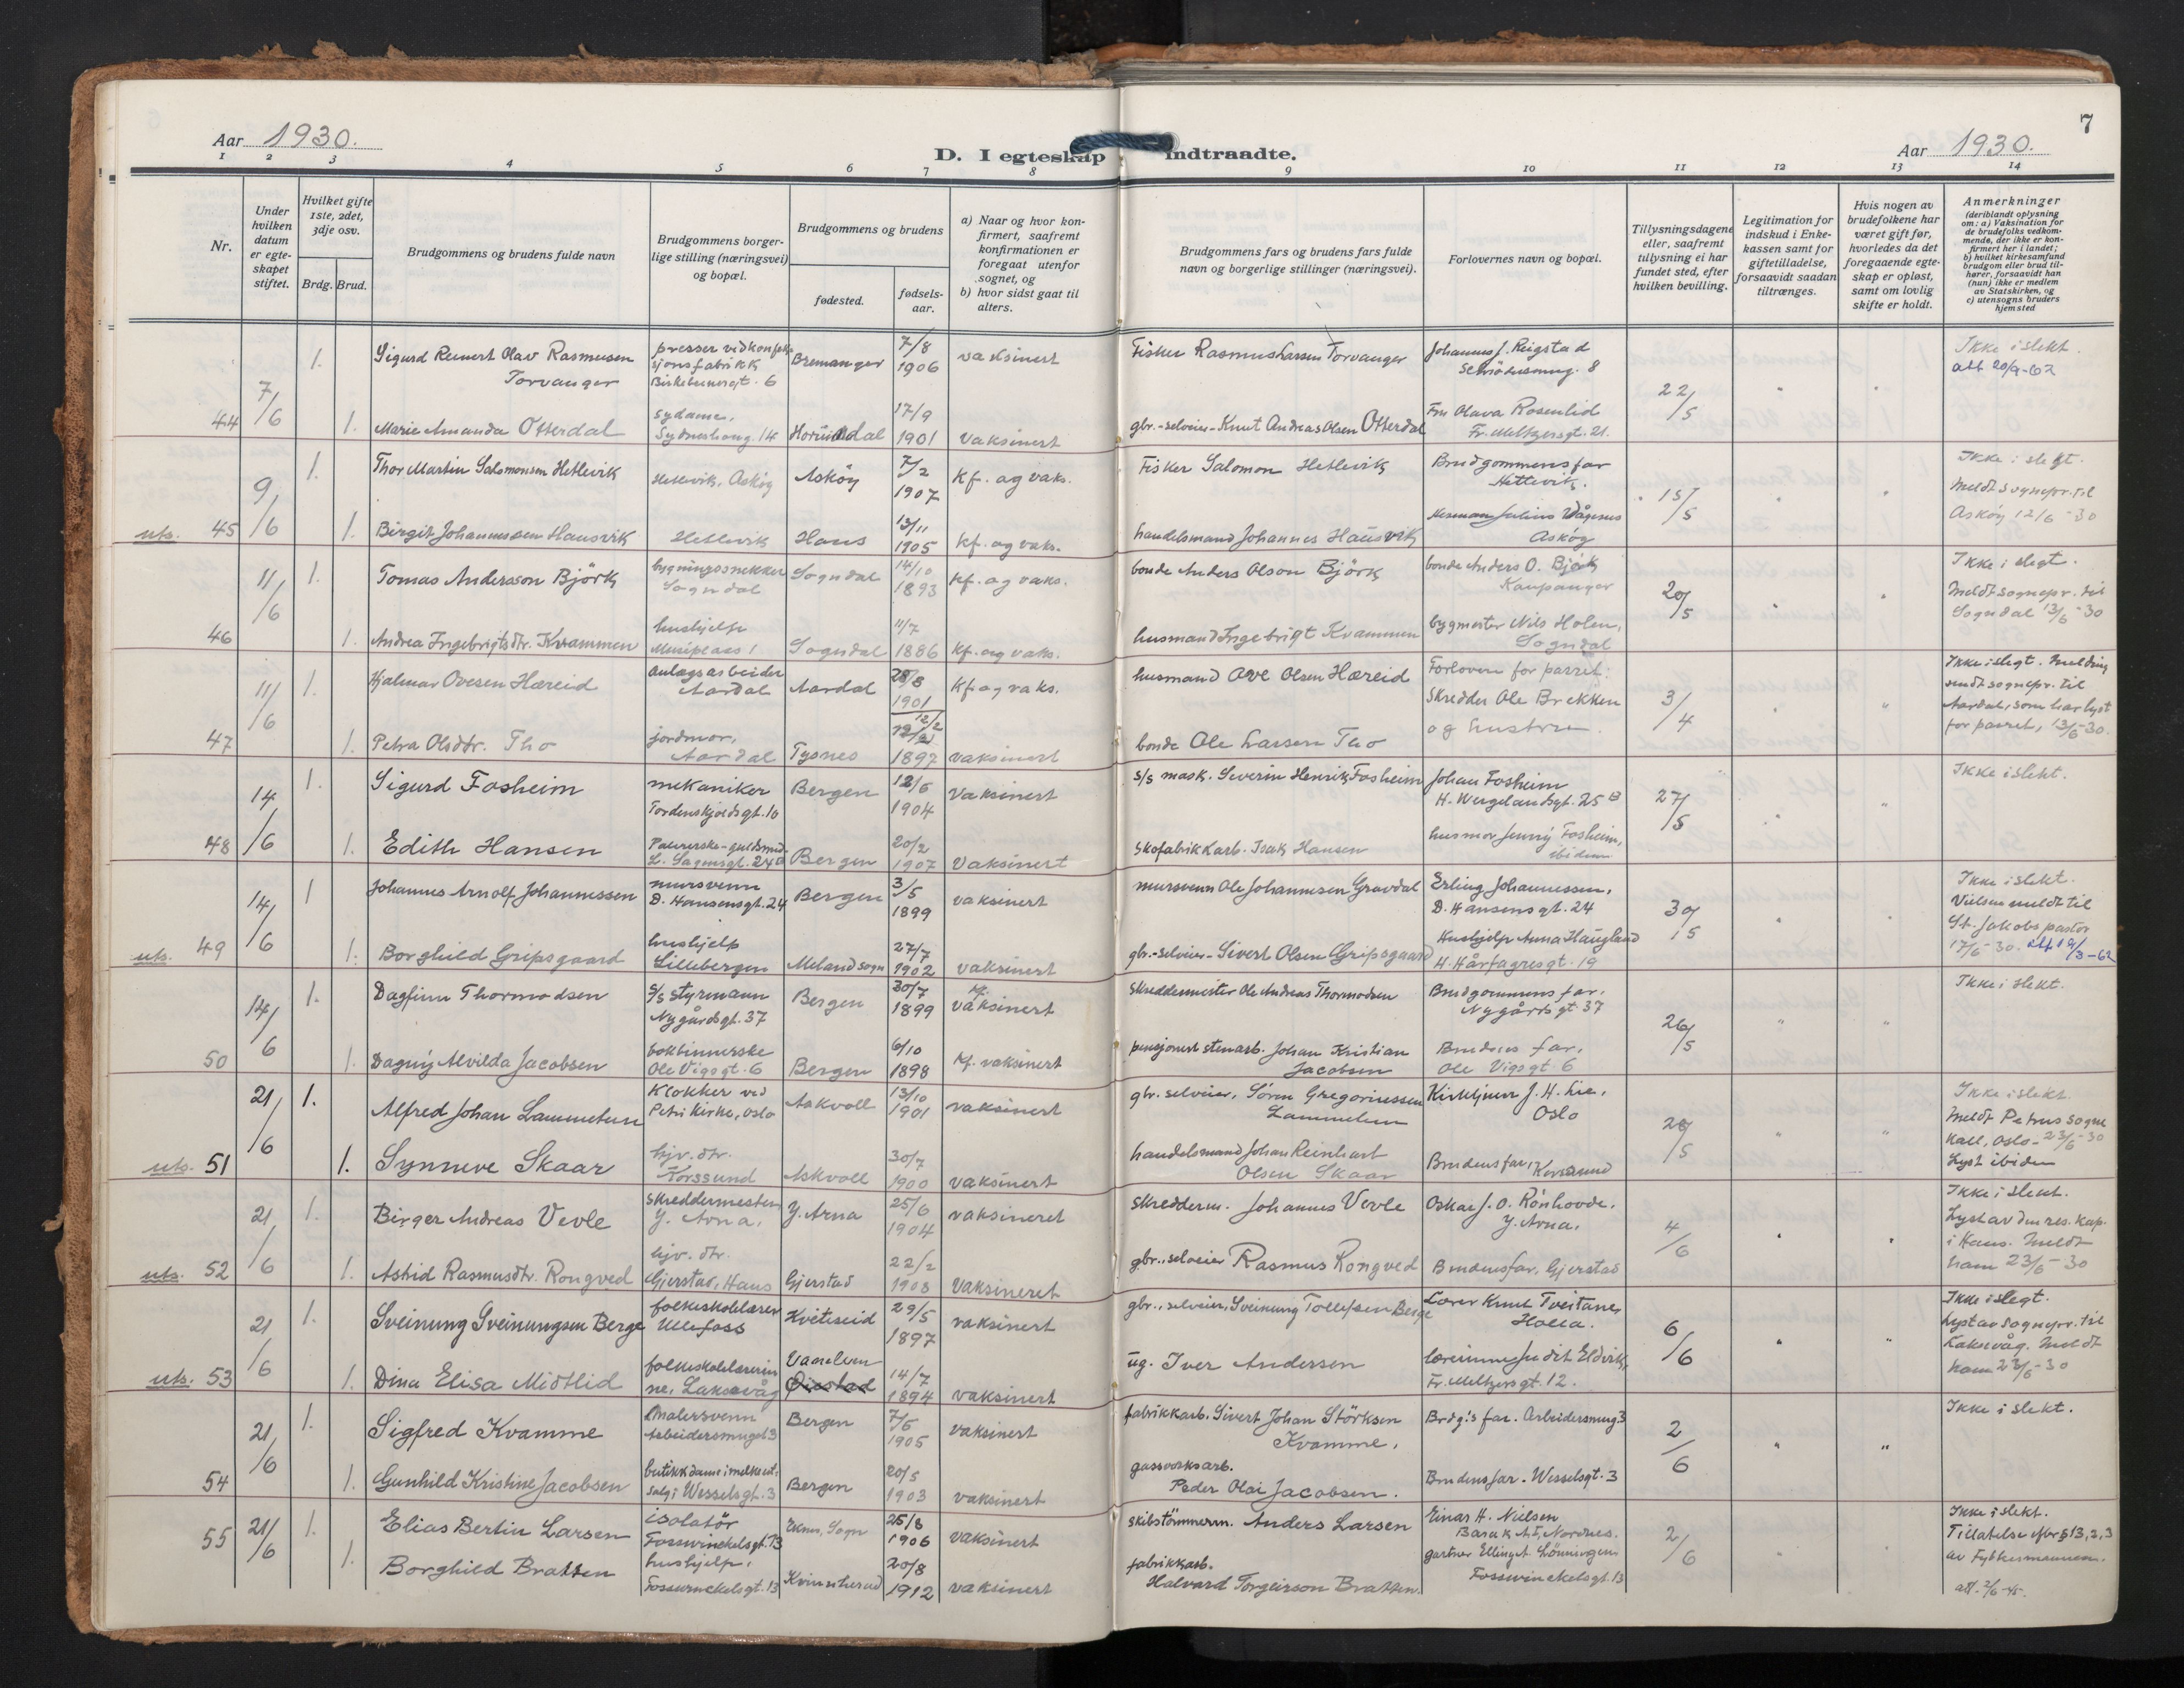 Aar 1930.
D. I egteskap indtraadte.
Aar 1930.
7
1 2 3 4 5 6 7 8 9 10 11 12 13 14
Nr.
Under hvilken datum er egteskapet stiftet.
Hvilket gifte 1ste, 2det, 3dje osv.
Brdg. Brud.
Brudgommens og brudens fulde navn
Brudgommens borgerlige stilling (næringsvei) og bopæl.
Brudgommens og brudens
fødested.
fødselsaar.
a) Naar og hvor konfirmert, saafremt konfirmationen er foregaat utenfor sognet, og
b) hvor sidst gaat til alters.
Brudgommens fars og brudens fars fulde navn og borgerlige stillinger (næringsvei).
Forlovernes navn og bopæl.
Tillysningsdagene eller, saafremt tillysning ei har fundet sted, efter hvilken bevilling.
Legitimation for indskud i Enkekassen samt for giftetilladelse, forsaavidt saadan tiltrænges.
Hvis nogen av brudefolkene har været gift før, hvorledes da det foregaaende egteskap er opløst, samt om lovlig skifte er holdt.
Anmerkninger (deriblandt oplysning om: a) Vaksination for de brudefolks vedkommende, der ikke er konfirmert her i landet; b) hvilket kirkesamfund brudgom eller brud tilhører, forsaavidt han (hun) ikke er medlem av Statskirken, og c) utensogns bruders hjemsted
44 7/6 1. Sigurd Reinert Olav Rasmusen Torvanger presser ved konfeksjonsfabrikk Birkebeinersgt. 6 Bremanger 7/8 1906 vaksinert Fisker Rasmus Larsen Torvanger Johannes J. Reigstad 8 22/5 Ikke i slekt. att 20/9-62
1. Marie Amanda Otterdal sydame, Sydneshaug. 14 Hornindal 17/9 1901 vaksinert gbr.-selveier-Knut Andreas Olsen Otterdal Fru Olava Rosenlid Fr. Meltzersgt. 21.
uts. 45 9/6 1. Thor Martin Salomonsen Hetlevik Hetlevik, Askøy Askøy 7/2 1907 kf. og vaks. Fisker Salomon Hetlevik Brudgommens far Hetlevik. 15/5 Ikke i slegt. Meldt sognepr. til Askøy 12/6-30
1. Birgit Johannessen Hausvik Hetlevik Haus 13/11 1905 kf. og vaks. handelsmand Johannes Hausvik Herman Julius Vågenes Askøy
46 11/6 1. Tomas Andersson Björk bygningssnekker Sogndal Sogndal 14/10 1893 kf. og vaks. bonde Anders Olson Björk bonde Anders O. Björk Kaupanger 20/5 Ikke i slegt. Meldt sognepr. til Sogndal 13/6-30
1. Andrea Ingebrigtsdtr. Kvammen hushjelp 1 Sogndal 11/7 1886 kf. og vaks. husmand Ingebrigt Kvammen bygmester Nils Holen, Sogndal
47 11/6 1. Hjalmar Ovesen Hæreid anlegsarbeider Aardal Aardal 28/8 1901 kf. og vaks. husmand Ove Olsen Hæreid Forlovere for parret: Skredder Ole Brekken og hustru 3/4 Ikke i slegt. Melding sendt sognepr. til Aardal, som har lyst for parret, 13/6-30.
1. Petra Olsdtr. Tho jordmor, Aardal Tysnes 12/2 1897 vaksinert bonde Ole Larsen Tho
48 14/6 1. Sigurd Fosheim mekaniker Tordenskjoldsgt. 10 Bergen 12/6 1904 Vaksinert S/s mask. Severin Henrik Fosheim Johan Fosheim H. Wergelandsgt. 25 B 27/5 Ikke i slekt.
1. Edith Hansen L. Sagensgt. 24 B Bergen 20/2 1907 Vaksinert Skofabrikkarb. Isak Hansen husmor Jenny Fosheim, ibidem
uts. 49 14/6 1 Johannes Arnolf Johannessen mursvenn D. Hansensgt. 24 Bergen 3/5 1899 vaksinert mursvenn Ole Johannesen Gravdal Erling Johannessen, D. Hansens gt. 24 30/5 Ikke i slekt. Vielsen meldt til St. Jakobs pastor 17/6-30. att 19/3-62
1. Borghild Gripsgaard hushjelp Lillebergen Meland sogn 27/7 1902 vaksinert gbr.-selveier-Sivert Olsen Gripsgaard Hushjelp Anna Haugland H. Hårfagresgt. 19
50 14/6 1. Dagfinn Thormodsen S/s styrmann Nygårdsgt. 37 Bergen 30/7 1899 kf. vaksinert Skreddermester Ole Andreas Thormodsen Brudgommens far. Nygårdsgt 37 26/5 Ikke i slekt.
1. Dagny Alvilda Jacobsen bokbinnerske Ole Vigsgt. 6 Bergen 6/10 1898 kf. vaksinert pensjonert stenarb. Johan Kristian Jacobsen Brudens far, Ole Vigsgt 6
uts. 51 21/6 1. Alfred Johan Lammetun Klokker ved Petri kirke, Oslo Askvoll 13/10 1901 vaksinert gbr. selveier, Søren Gregoriussen Lammetun Kirketjener J. H. Lie, Oslo 28/5 Ikke i slekt. Meldt Petrus sogne kall, Oslo-23/6-30 Lyst ibidem
1. Synneve Skaar hjv. dtr. Korssund Askvoll 30/7 1900 vaksinert handelsmand Johan Reinhart Olsen Skaar Brudens far, Korssund
uts. 52 21/6 1. Birger Andreas Vevle Skreddermester Y. Arna, Y. Arna 25/6 1904 vaksineret Skredderm. Johannes Vevle Oskar J. O. Rönhovde. Y. Arna. 4/6 Ikke i slekt. Lyst av den res. kap. i Haus. Meldt ham 23/6-30
1. Astrid Rasmusdtr. Rongved hjv. dtr. Gjerstad, Haus Gjerstad 22/2 1908 Vaksineret gbr., selveier Rasmus Rongved Brudens far, Gjerstad
uts. 53 21/6 1. Sveinung Sveinungsen Berge folkeskolelærer Ullefoss Kviteseid 29/5 1897 vaksinert gbr., selveier, Sveinung Tollefsen Berge Lærer Knut Tveitane, Holla. 6/6 Ikke i slegt. Lyst av sognepr. til Laksevåg. Meldt ham 23/6-30
1. Dina Elisa Midtlid folkeskolelærerinne, Laksevåg 14/7 1894 vaksinert ug. Iver Andersen lærerinne Judit Eldvik, Fr. Meltzersgt. 12.
54 21/6 1. Sigfred Kvamme Malersvenn Arbeidersmuget 3 Bergen 7/5 1905 vaksinert fabrikkarb. Sivert Johan Störksen Kvamme, Brdg's far. Arbeidersmug 3 2/6 Ikke i slekt.
1. Gunhild Kristine Jacobsen butikkdame i melkeutsalg i Wesselsgt. 3 Bergen 20/5 1903 vaksinert gassverksarb. Peder Olai Jacobsen. Brudens far. Wesselsgt. 3
55 21/6 1. Elias Bertin Larsen isolatör Fosswinckelsgt. 13 Sogn 25/8 1906 vaksinert skibstömmerm. Anders Larsen Einar H. Nielsen Barak Nordnes. 2/6 Ikke i slekt. Tillatelse § 13, 2, 3 av Fylkesmannen. att. 2/6-45.
1. Borghild Bratten hushjelp, Fosswinckelsgt. 13 Kvinnherad 20/8 1912 vaksinert fabrikkarb. Halvard Torgeirson Bratten. gartner Fosswinckelsgt. 13